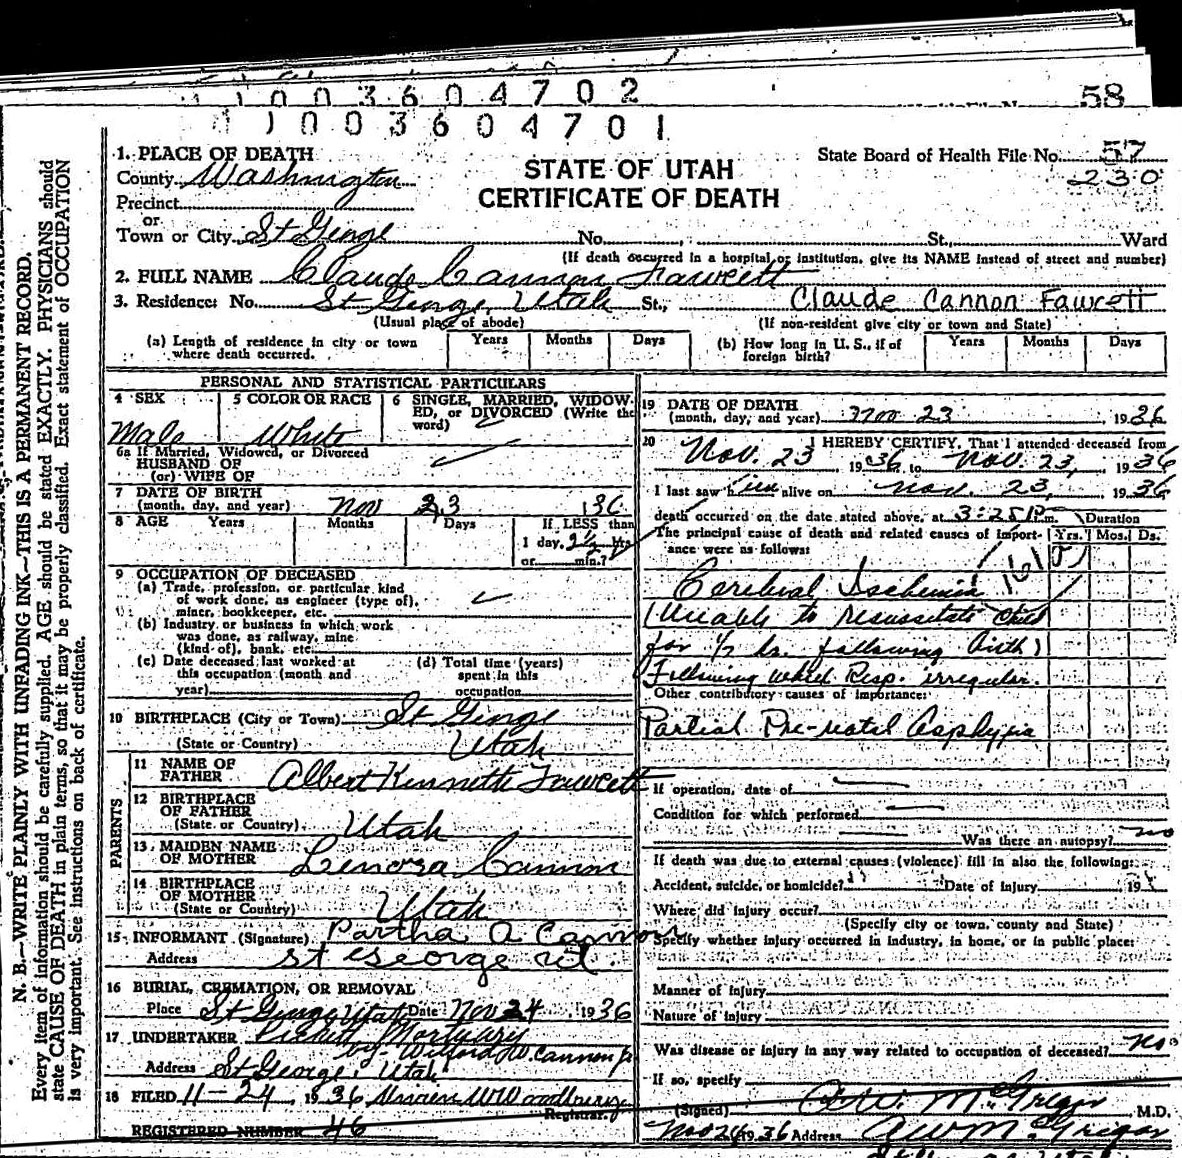 1003604702
58
1003604701
1. PLACE OF DEATH
County Washington
Precinct
or
Town or City St George No. St., Ward
(If death occurred in a hospital or institution, give its NAME instead of street and number)
STATE OF UTAH
CERTIFICATE OF DEATH
State Board of Health File No. 57
230
2. FULL NAME Claude Cannon Fawcett
3. Residence: No. St George, Utah St., Claude Cannon Fawcett
(Usual place of abode) (If non-resident give city or town and State)
(a) Length of residence in city or town where death occurred. Years Months Days
(b) How long in U. S., if of foreign birth? Years Months Days
PERSONAL AND STATISTICAL PARTICULARS
4 SEX Male
5 COLOR OR RACE White
6 SINGLE, MARRIED, WIDOWED, or DIVORCED (Write the word)
6a If Married, Widowed, or Divorced
HUSBAND OF
(or) WIFE OF
7 DATE OF BIRTH
(month, day, and year) Nov 23 136
8 AGE Years Months Days If LESS than
1 day, 2½ hrs
or min.?
9 OCCUPATION OF DECEASED
(a) Trade, profession, or particular kind
of work done, as engineer (type of),
miner, bookkeeper, etc.
(b) Industry or business in which work
was done, as railway, mine
(kind of), bank, etc.
(c) Date deceased last worked at
this occupation (month and
year)
(d) Total time (years)
spent in this
occupation
10 BIRTHPLACE (City or Town) St George
(State or Country) Utah
PARENTS
11 NAME OF
FATHER Albert Kenneth Fawcett
12 BIRTHPLACE
OF FATHER
(State or Country) Utah
13 MAIDEN NAME
OF MOTHER Lenora Cannon
14 BIRTHPLACE
OF MOTHER
(State or Country) Utah
15 INFORMANT (Signature) Partha A Cannon
Address St George Ut.
16 BURIAL, CREMATION, OR REMOVAL
Place St George Utah Date Nov 24 1936
17 UNDERTAKER Pickett Mortuary
by Wilford W. Cannon Jr
Address St George, Utah
18 FILED 11-24, 1936 W W Woodbury
Registrar.
REGISTERED NUMBER 46
19 DATE OF DEATH
(month, day, and year) Nov 23, 1936
20 I HEREBY CERTIFY, That I attended deceased from
Nov. 23, 1936, to Nov. 23, 1936
I last saw him alive on Nov. 23, 1936
death occurred on the date stated above, at 3:25 P.m.
Duration
Yrs. Mos. Ds.
The principal cause of death and related causes of importance were as follows:
Cerebral Ischemia
(Unable to resussitate child
for ½ hr. following birth)
Following which Resp. irregular.
Other contributory causes of importance:
Partial Pre-natal Asphyxia
If operation, date of
Condition for which performed
Was there an autopsy? no
If death was due to external causes (violence) fill in also the following:
Accident, suicide, or homicide? Date of injury 19
Where did injury occur?
(Specify city or town, county and State)
Specify whether injury occurred in industry, in home, or in public place:
Manner of injury
Nature of injury
Was disease or injury in any way related to occupation of deceased? no
If so, specify
(Signed) A.W. McGregor M.D.
Nov 24 1936 Address A W McGregor
N. B.—WRITE PLAINLY WITH UNFADING INK—THIS IS A PERMANENT RECORD.
Every item of information should be carefully supplied. AGE should be stated EXACTLY. PHYSICIANS should
state CAUSE OF DEATH in plain terms, so that it may be properly classified. Exact statement of OCCUPATION
is very important. See instructions on back of certificate.